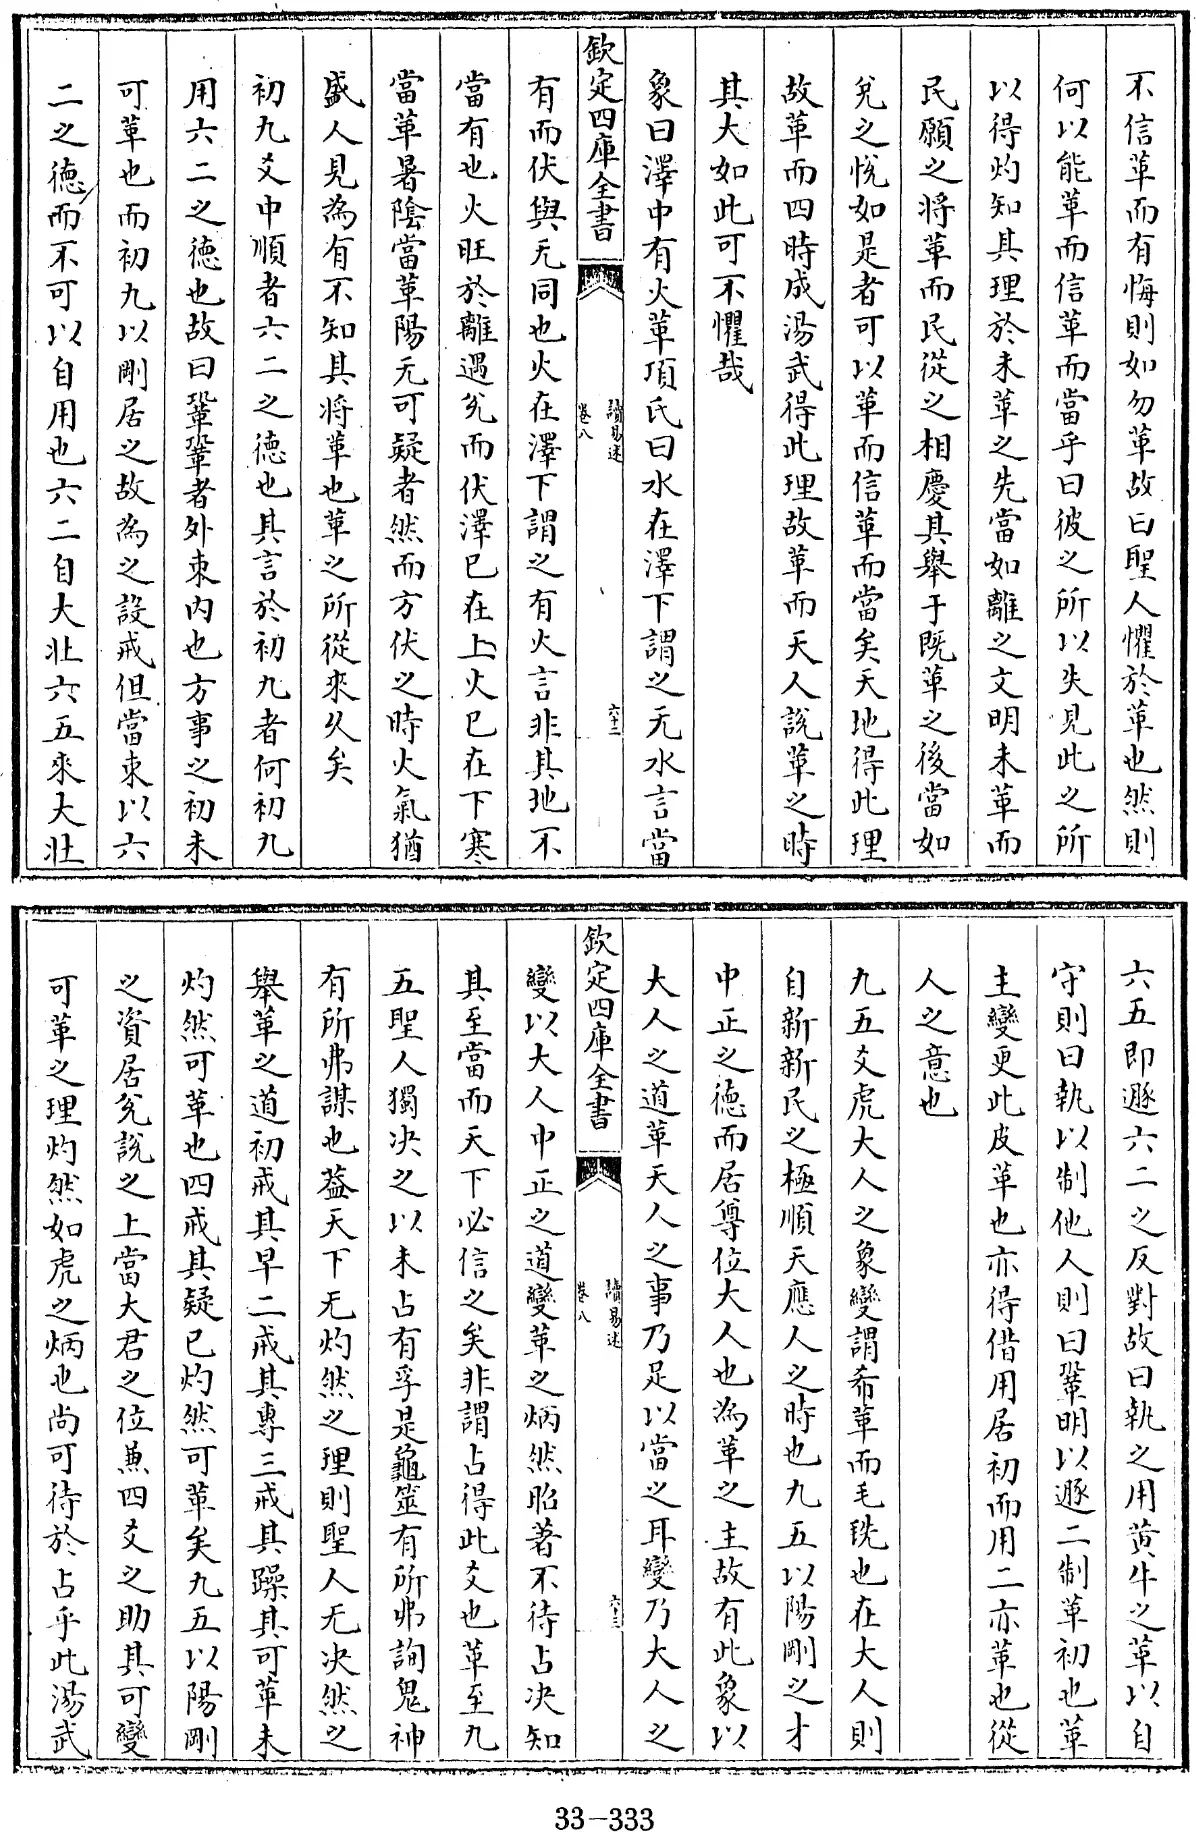 不信革而有悔則如勿革故曰聖人懼於革也然則
何以能革而信革而當乎曰彼之所以失見此之所
以得灼知其理於未革之先當如離之文明未革而
民願之將革而民從之相慶其舉于既革之後當如
兌之悅如是者可以革而信革而當矣天地得此理
故革而四時成湯武得此理故革而天人說革之時
其大如此可不懼哉
象曰澤中有火革項氏曰水在澤下謂之无水言當
欽定四庫全書
讀易述
卷八
六十二
有而伏與无同也火在澤下謂之有火言非其地不
當有也火旺於離遇兌而伏澤已在上火已在下寒
當革暑陰當革陽无可疑者然而方伏之時火氣猶
盛人見為有不知其將革也革之所從來久矣
初九爻中順者六二之德也其言於初九者何初九
用六二之德也故曰鞏鞏者外束內也方事之初未
可革也而初九以剛居之故為之設戒但當束以六
二之德而不可以自用也六二自大壯六五來大壯
六五即遯六二之反對故曰執之用黄牛之革以自
守則曰執以制他人則曰鞏明以遯二制革初也革
主變更此皮革也亦得借用居初而用二亦革也從
人之意也
九五爻虎大人之象變謂希革而毛毨也在大人則
自新新民之極順天應人之時也九五以陽剛之才
中正之德而居尊位大人也為革之主故有此象以
大人之道革天人之事乃足以當之耳變乃大人之
欽定四庫全書
讀易述
卷八
六十三
變以大人中正之道變革之炳然昭著不待占决知
其至當而天下必信之矣非謂占得此爻也革至九
五聖人獨决之以未占有孚是龜筮有所弗詢鬼神
有所弗謀也葢天下无灼然之理則聖人无决然之
舉革之道初戒其早二戒其專三戒其躁其可革未
灼然可革也四戒其疑已灼然可革矣九五以陽剛
之資居兌說之上當大君之位兼四爻之助其可變
可革之理灼然如虎之炳也尚可待於占乎此湯武
33-333